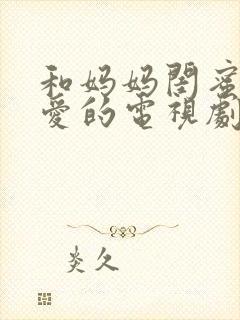 和妈妈閨蜜
愛的電視劇
炎久